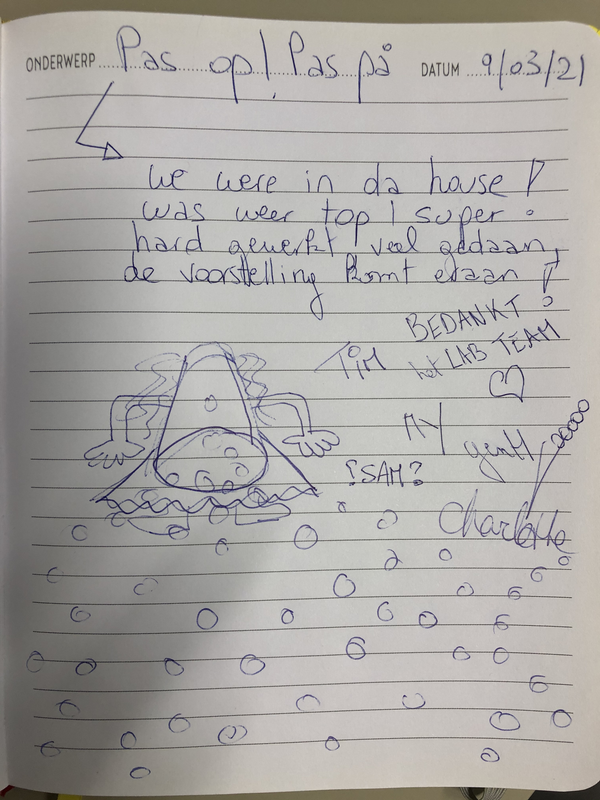 ONDERWERP Pas op! Pas på DATUM 9/03/21
we were in da house!
was weer top! super!
hard gewerkt! veel gedaan,
de voorstelling komt eraan!
BEDANKT!
TiM het LAB TEAM
My yentl
!SAM?
Charlotte